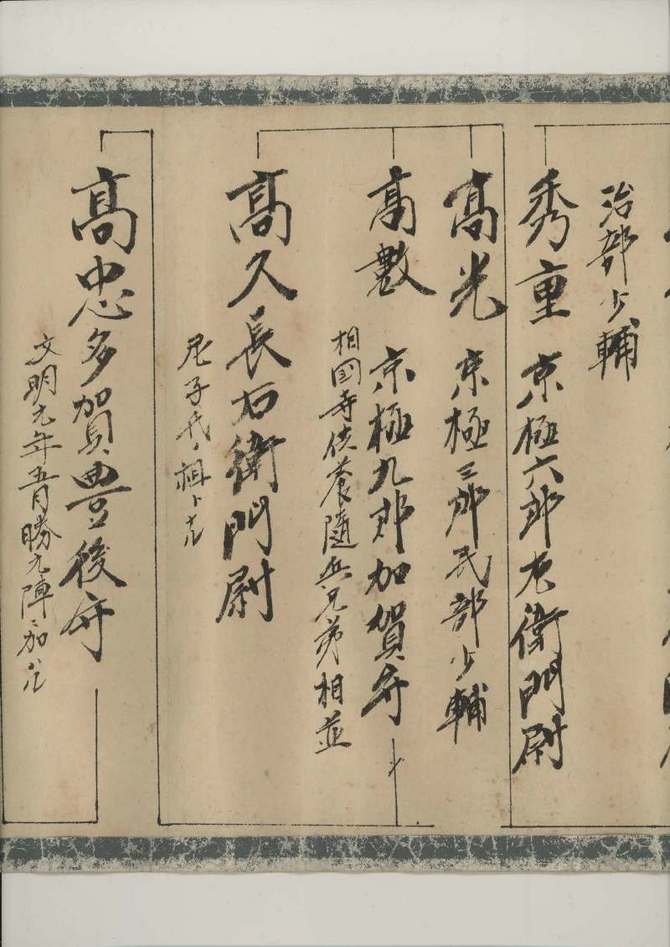 治部少輔
秀重 京極六郎左衛門尉
高光 京極三郎民部少輔
高数 京極九郎加賀守
相国寺供養随兵兄弟相並
高久 長右衛門尉
尼子氏ノ祖トナル
高忠 多賀豊後守
文明元年五月勝元陣ニ加ハル